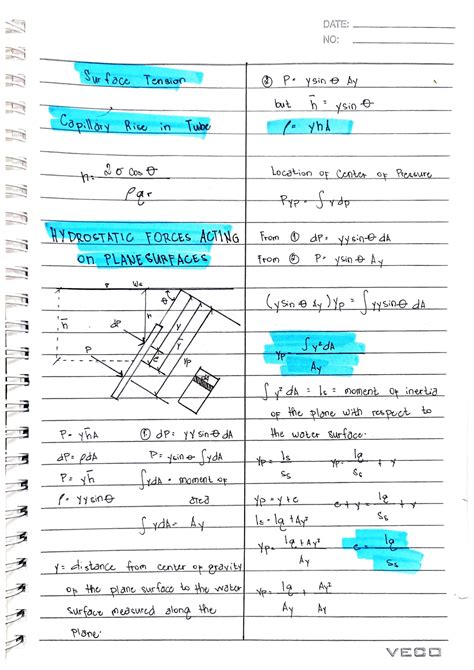 DATE:
NO:
Surface Tension
Capillary Rise in Tube
h = 2σ cos θ
ρgr
HYDROSTATIC FORCES ACTING
on PLANE SURFACES
P WS
θ
h̄
dP
y
ȳ
P
e
yp
P = γh̄A
dP = ρdA
P = γh̄
ρ = γy sin θ
① dP = γy sin θ dA
P = γ sin θ ∫ydA
∫ydA = moment of
area
∫ydA = Aȳ
ȳ = distance from center of gravity
of the plane surface to the water
surface measured along the
plane.
② P = γ sin θ Aȳ
but h̄ = ȳ sin θ
P = γh̄A
Location of Center of Pressure
Pyp = ∫ydp
From ① dP = γy sin θ dA
From ② P = γ sin θ Aȳ
(γ sin θ Aȳ) yp = ∫yγy sin θ dA
yp = ∫y²dA
Aȳ
∫y²dA = Is = moment of inertia
of the plane with respect to
the water surface.
yp = Is
Ss
yp = Ig + ȳ
Ss
yp = ȳ + e
e + ȳ = Ig + ȳ
Ss
Is = Ig + Aȳ²
yp = Ig + Aȳ²
Aȳ
e = Ig
Ss
yp = Ig + Aȳ²
Aȳ Aȳ
VECO